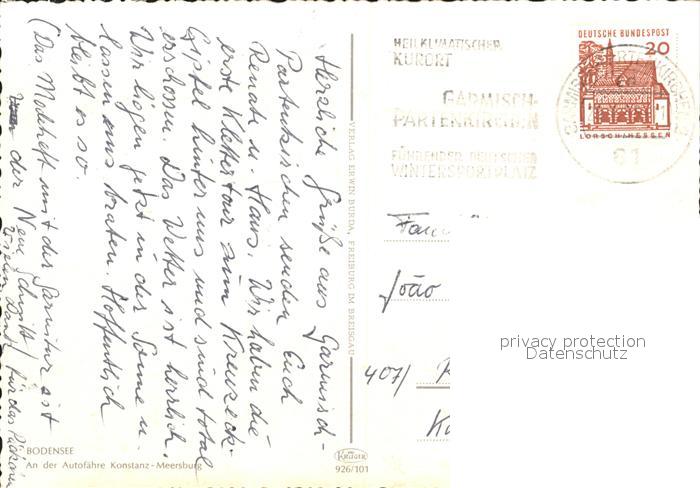 Herzliche Grüße aus Garmisch-
Partenkirchen senden Euch
Renate u. Hans. Wir haben die
erste Klettertour zum Kreuzeck-
Gipfel hinter uns und sind total
erschossen. Das Wetter ist herrlich.
Wir liegen jetzt in der Sonne u.
lassen uns braten. Hoffentlich
bleibt es so.
(Das Modeheft mit der Garnitur ist
der Neue Schnitt
für das
VERLAG ERWIN BURDA, FREIBURG IM BREISGAU
BODENSEE
An der Autofähre Konstanz - Meersburg
KRÜGER
926/101
HEILKLIMATISCHER
KURORT
GARMISCH-
PARTENKIRCHEN
FÜHRENDER DEUTSCHER
WINTERSPORTPLATZ
GARMISCH-PARTENKIRCHEN
61
DEUTSCHE BUNDESPOST
20
LORSCH/HESSEN
João
407/
privacy protection
Datenschutz